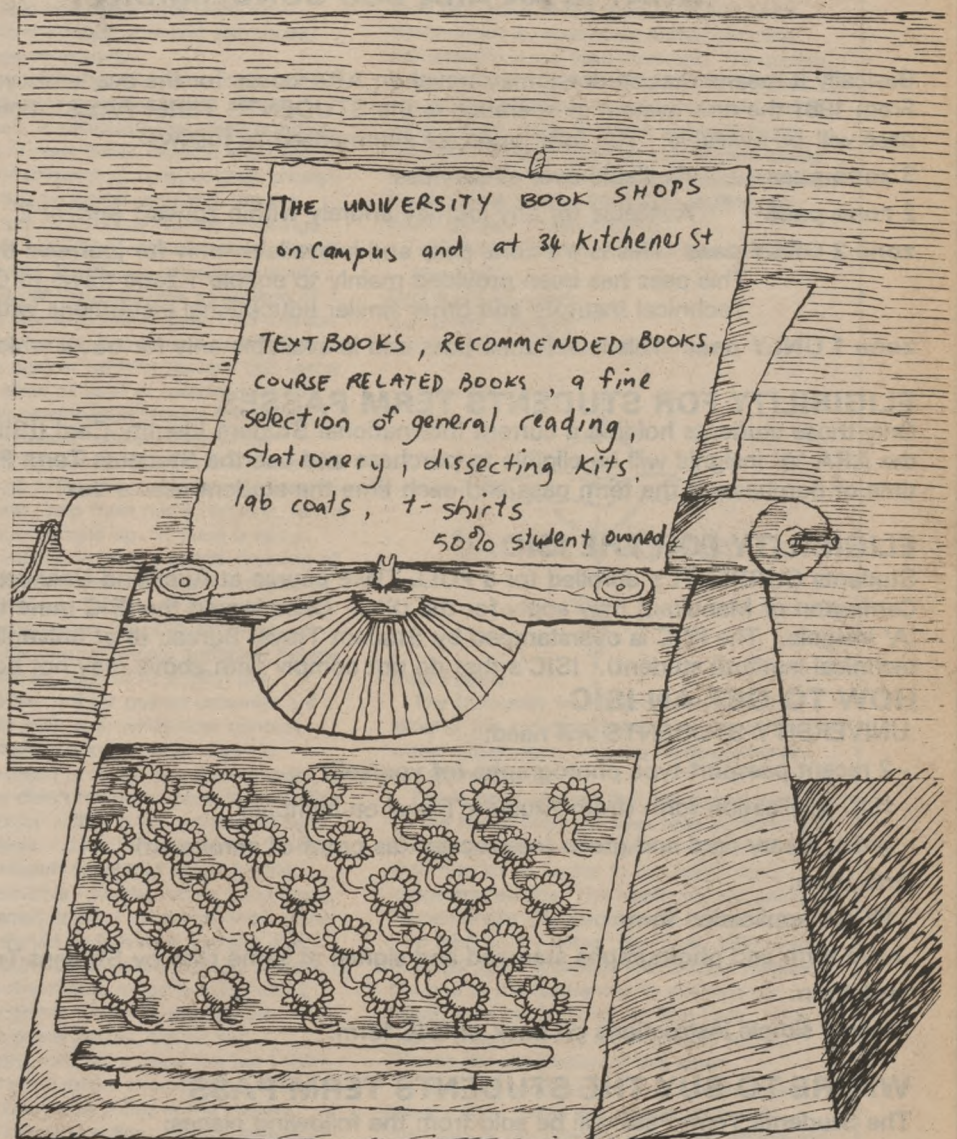 THE UNIVERSITY BOOK SHOPS
on Campus and at 34 Kitchener St
TEXTBOOKS, RECOMMENDED BOOKS,
COURSE RELATED BOOKS, a fine
selection of general reading,
stationery, dissecting kits
lab coats, t-shirts
50% student owned